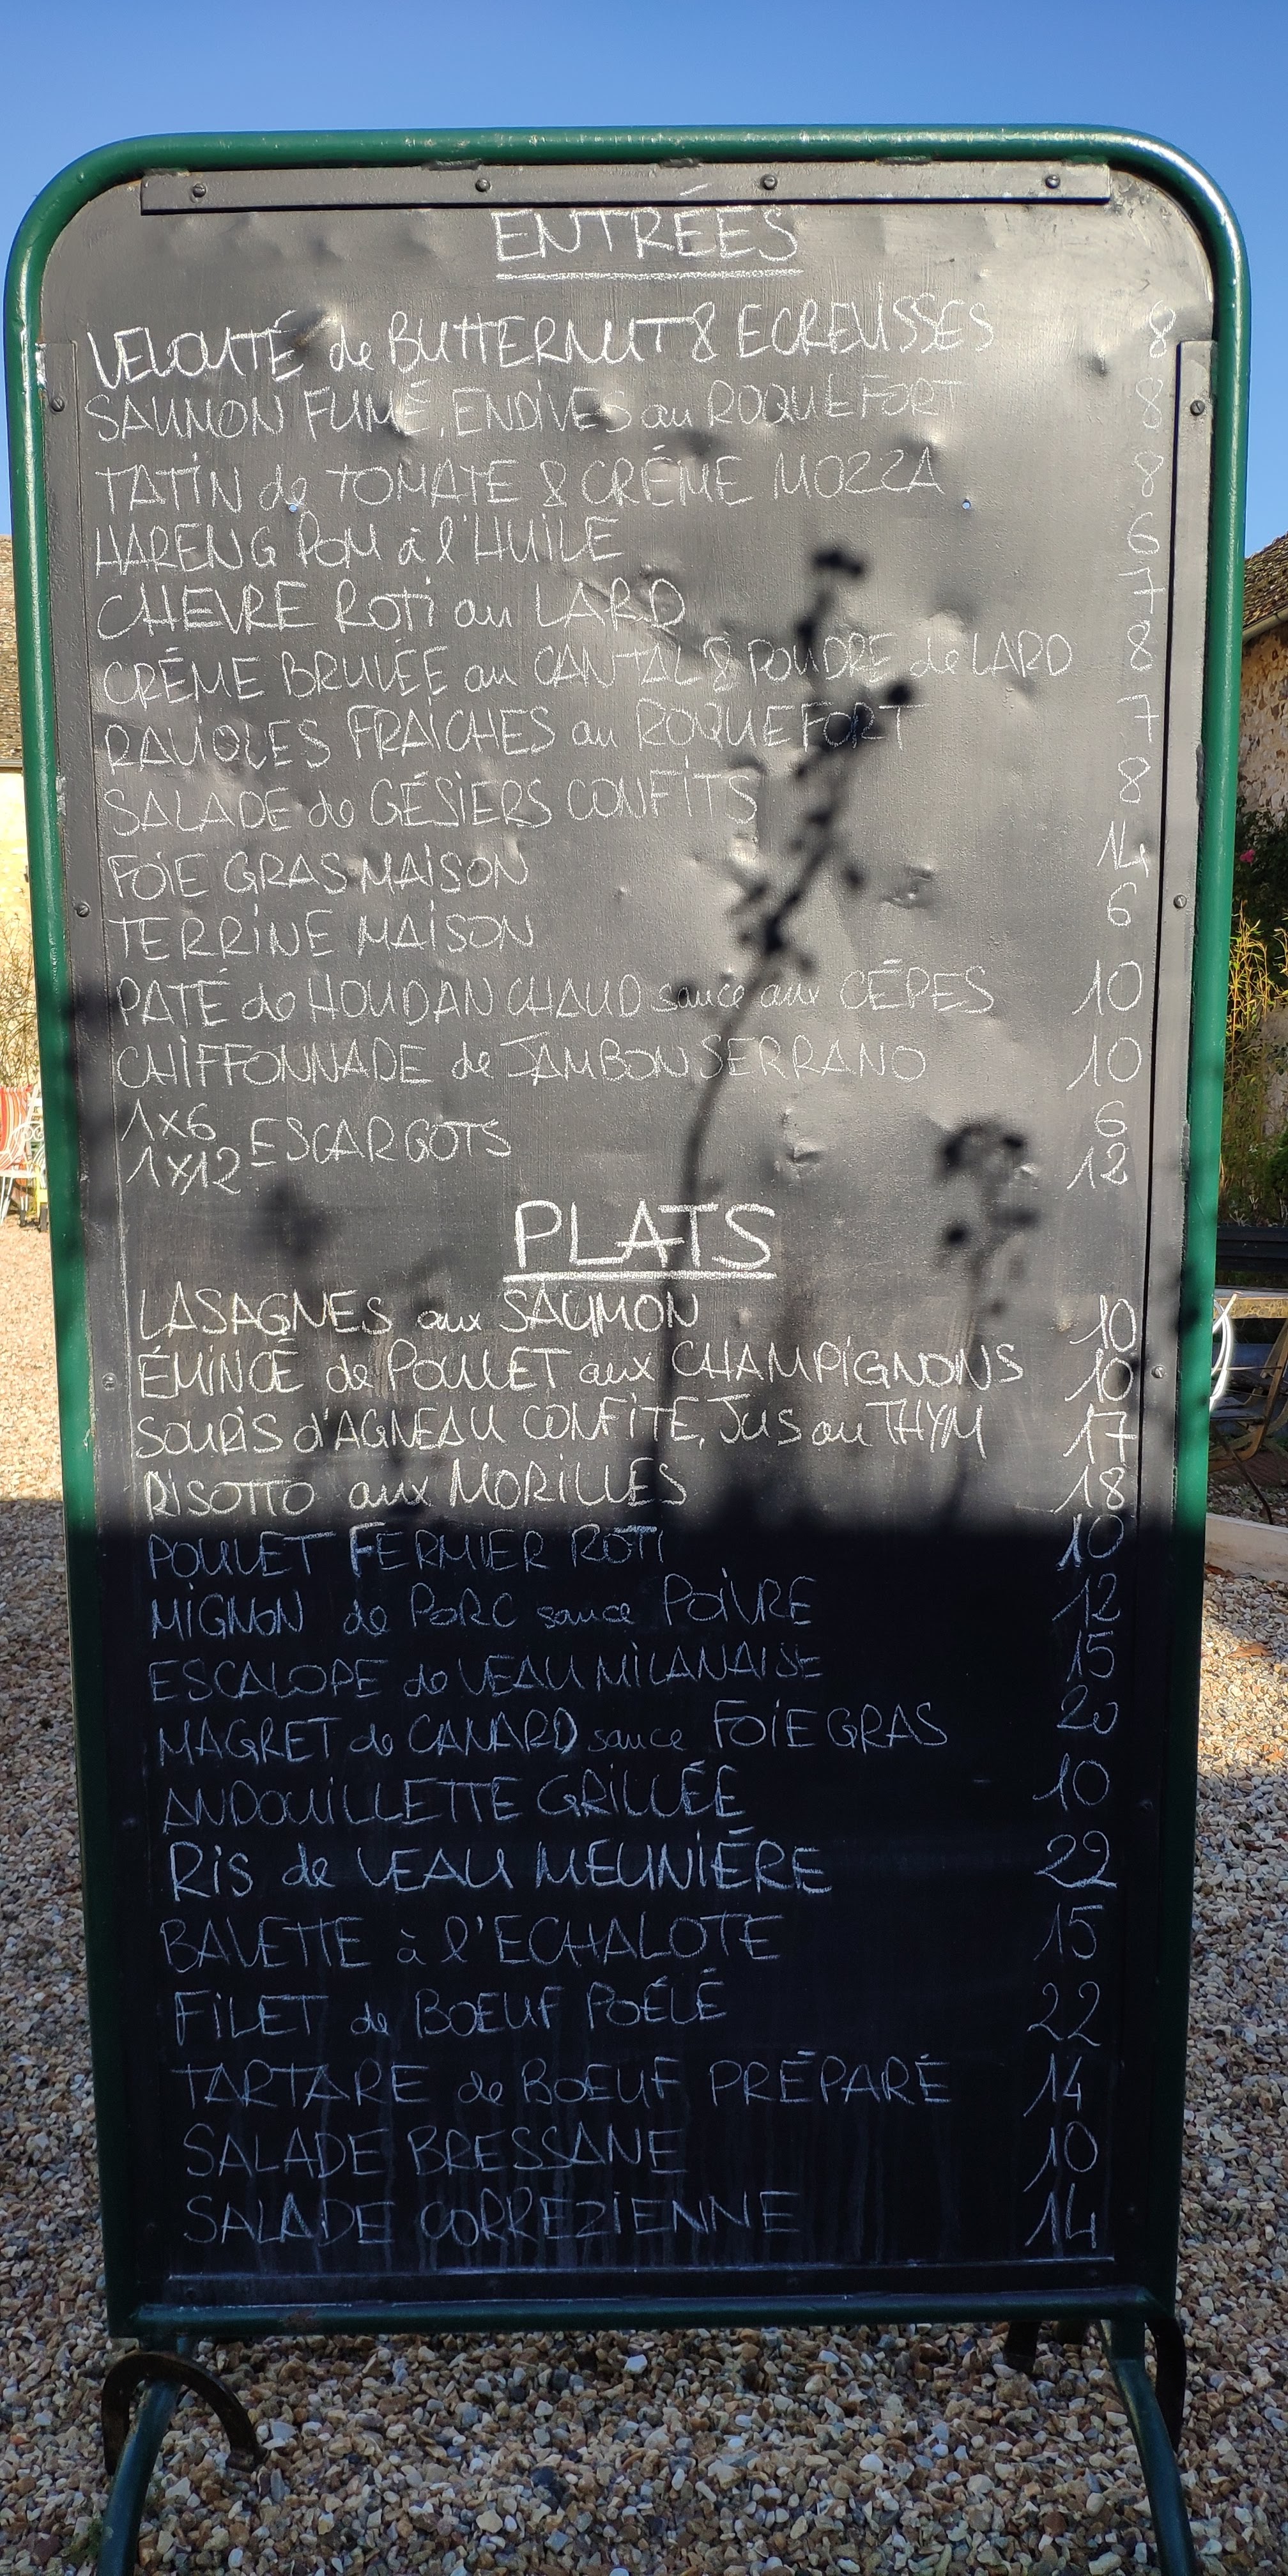 ENTRÉES
VELOUTÉ de BUTTERNUT & ECREVISSES 8
SAUMON FUMÉ, ENDIVES au ROQUEFORT 8
TATIN de TOMATE & CRÉME MOZZA 8
HARENG POM à l'HUILE 6
CHEVRE RôTi au LARD 7
CRÉME BRULÉE au CANTAL & POUDRE de LARD 8
RAVIOLES FRAICHES au ROQUEFORT 7
SALADE de GÉSIERS CONFITS 8
FOIE GRAS MAISON 14
TERRINE MAISON 6
PATÉ de HOUDAN CHAUD sauce aux CÉPES 10
CHIFFONNADE de JAMBON SERRANO 10
1x6 ESCARGOTS 6
1x12 12
PLATS
LASAGNES aux SAUMON 10
ÉMINCÉ de POULET aux CHAMPIGNONS 10
SOURIS d'AGNEAU CONFITE, JUS au THYM 17
RISOTTO aux MORILLES 18
POULET FERMIER RÔTI 10
MIGNON de PORC sauce POIVRE 12
ESCALOPE de VEAU MILANAISE 15
MAGRET de CANARD sauce FOIE GRAS 20
ANDOUILLETTE GRILLÉE 10
RIS de VEAU MEUNIÉRE 22
BAVETTE à l'ECHALOTE 15
FILET de BOEUF POÉLÉ 22
TARTARE de BOEUF PRÉPARÉ 14
SALADE BRESSANE 10
SALADE CORREZIENNE 14